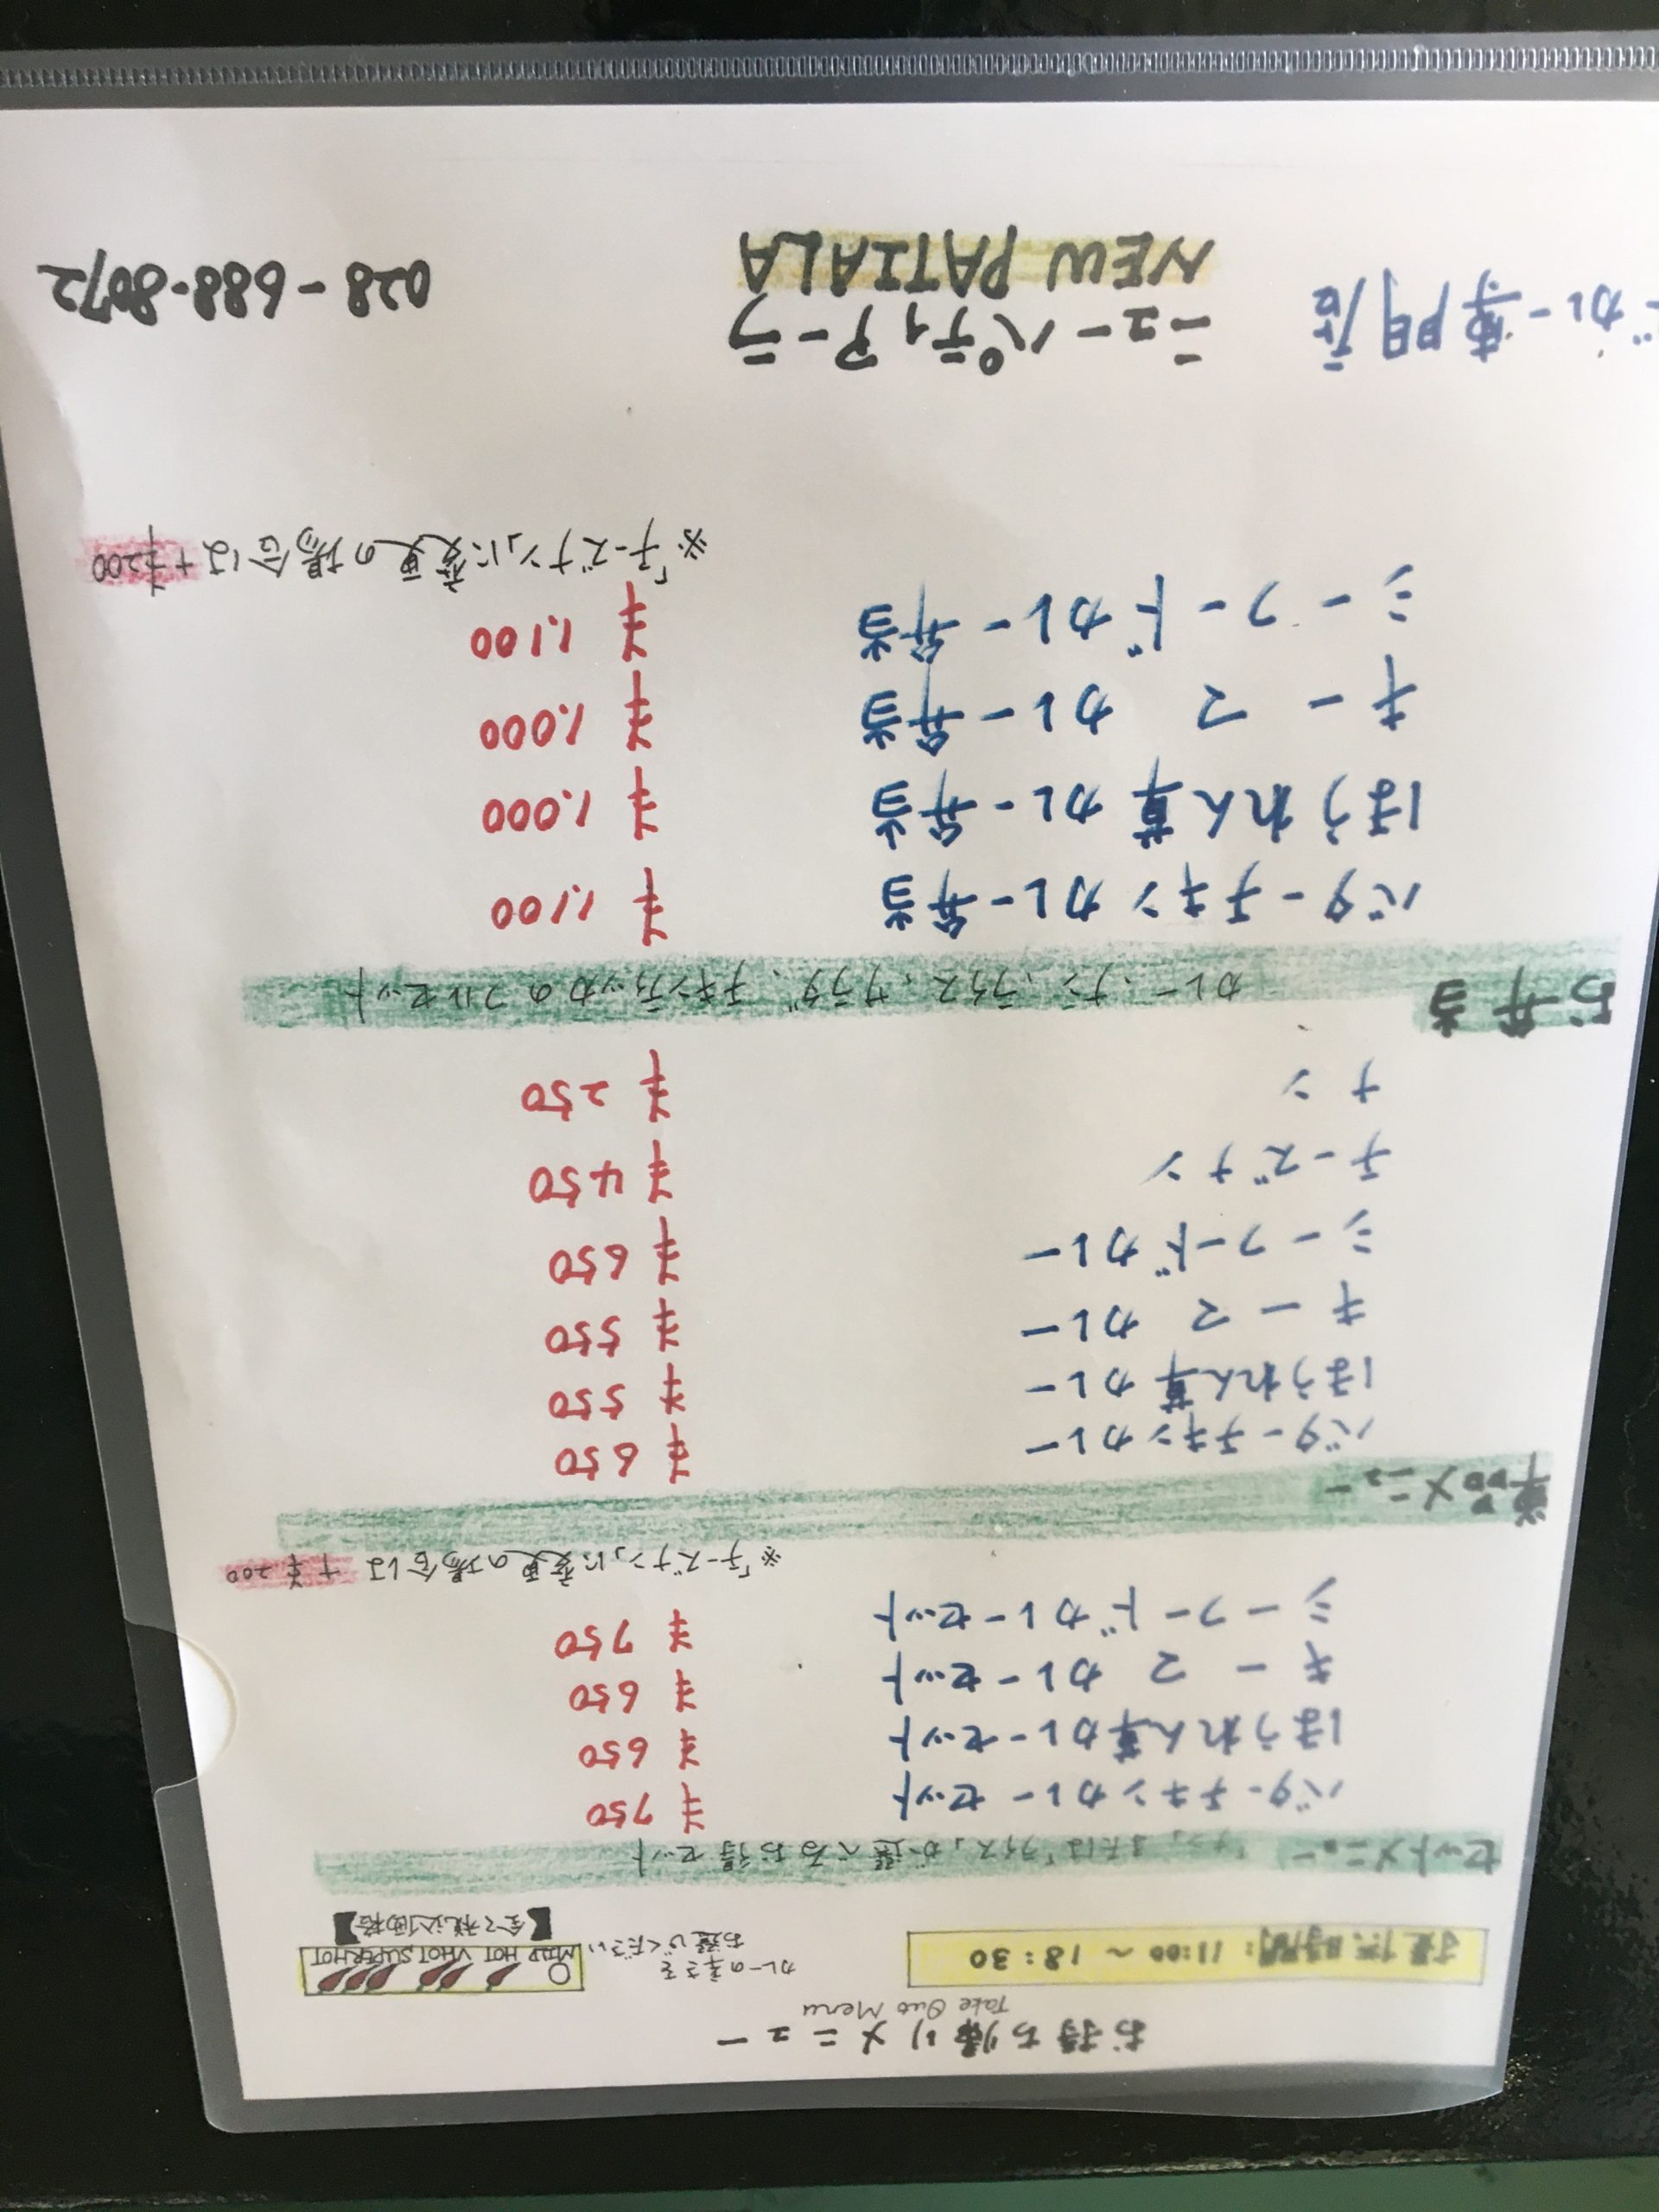 お持ち帰りメニュー
Take Out Menu
提供時間:11:00〜18:30
カレーの辛さを
お選びください
MILD HOT VHOT SUPERHOT
【全て税込価格】
セットメニュー 「ナン」または「ライス」が選べるお得セット
バターチキンカレーセット ¥750
ほうれん草カレーセット ¥650
キーマカレーセット ¥650
シーフードカレーセット ¥750
※「チーズナン」に変更の場合は+¥200
単品メニュー
バターチキンカレー ¥650
ほうれん草カレー ¥550
キーマカレー ¥550
シーフードカレー ¥650
チーズナン ¥450
ナン ¥250
お弁当 カレー、ナン、ライス、サラダ、チキンティッカのフルセット
バターチキンカレー弁当 ¥1.100
ほうれん草カレー弁当 ¥1.000
キーマカレー弁当 ¥1.000
シーフードカレー弁当 ¥1.100
※「チーズナン」に変更の場合は+¥200
カレー専門店 ニューパティアーラ
NEW PATIALA
028-688-8072